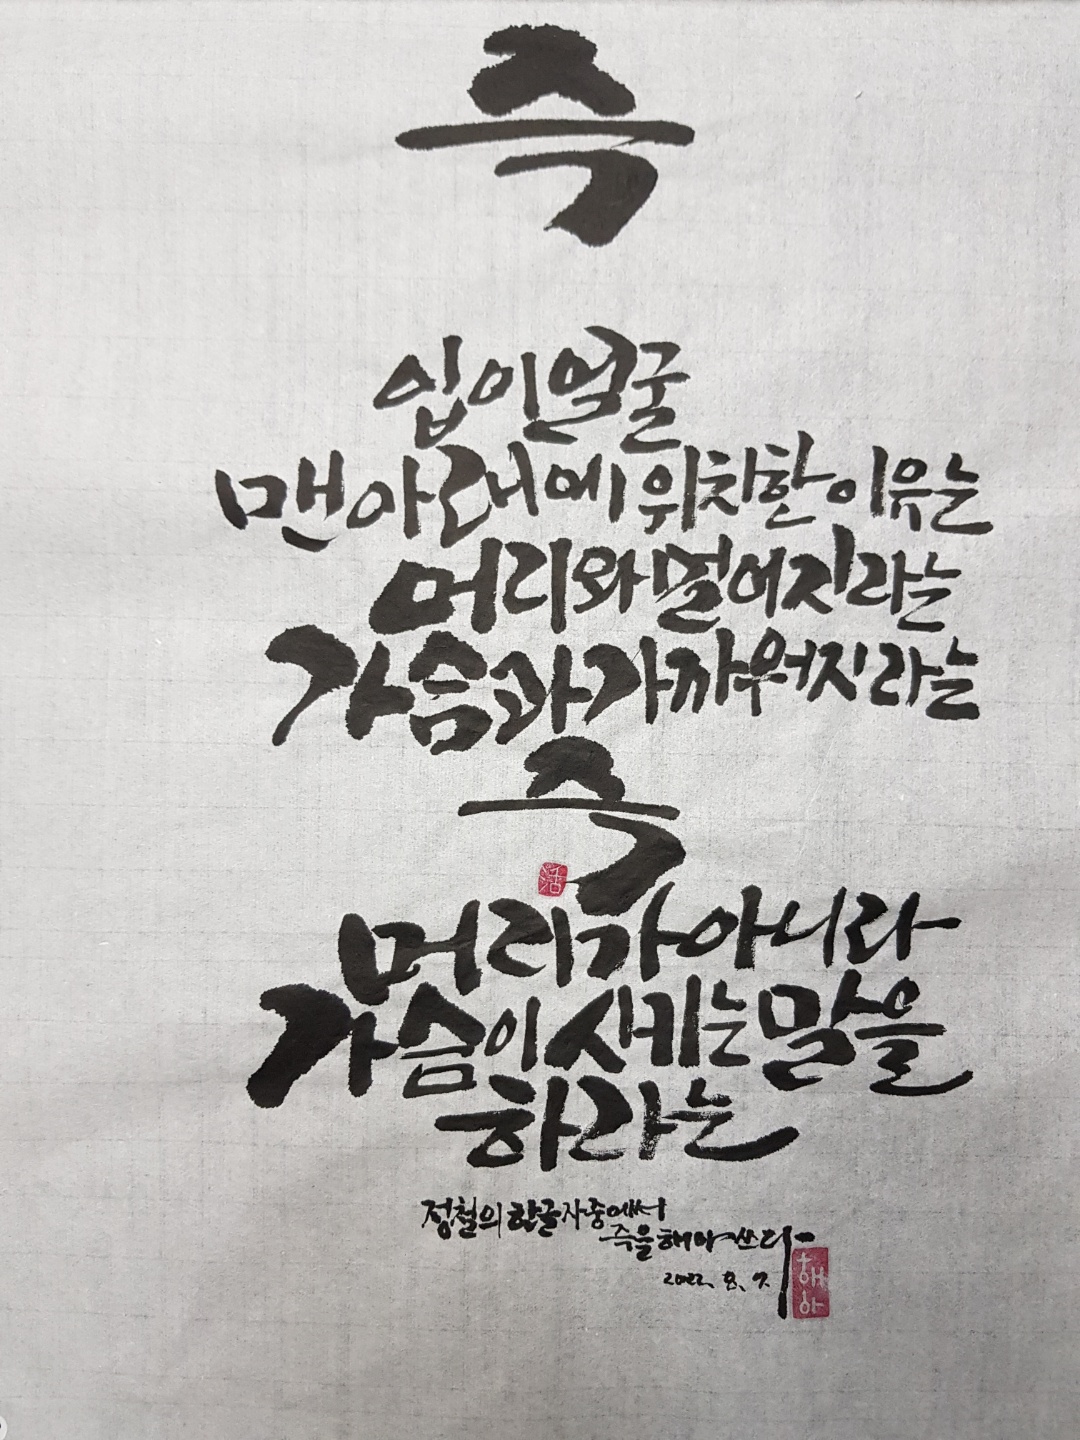 즉
입이 얼굴
맨 아래에 위치한 이유는
머리와 멀어지라는
가슴과 가까워지라는
즉
머리가 아니라
가슴이 새기는 말을
하라는
정철의 한글자 중에서
즉을 해마 쓰다
2022. 8. 7.
해하